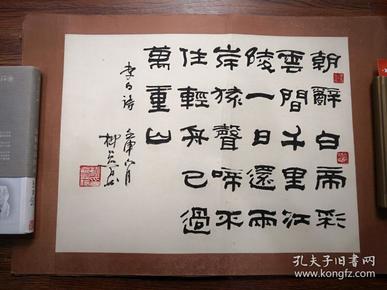 朝辭白帝彩
雲間千里江
陵一日還兩
岸猿聲啼不
住輕舟已過
萬重山
李白詩
孔夫子旧书网
kongfz.com